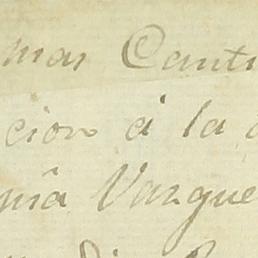 mas Canti
cion á la
mía Vazque